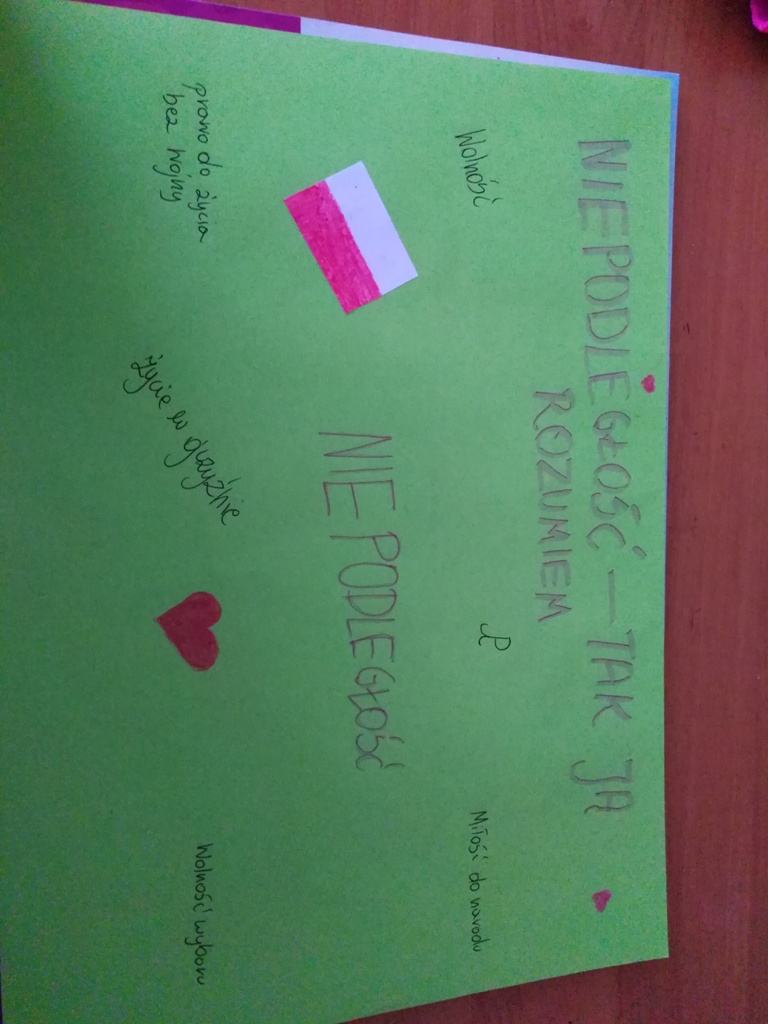 NIEPODLEGŁOŚĆ — TAK JĄ
ROZUMIEM
Wolność
Miłość do narodu
NIEPODLEGŁOŚĆ
prawo do życia
bez wojny
życie w ojczyźnie
Wolność wyboru